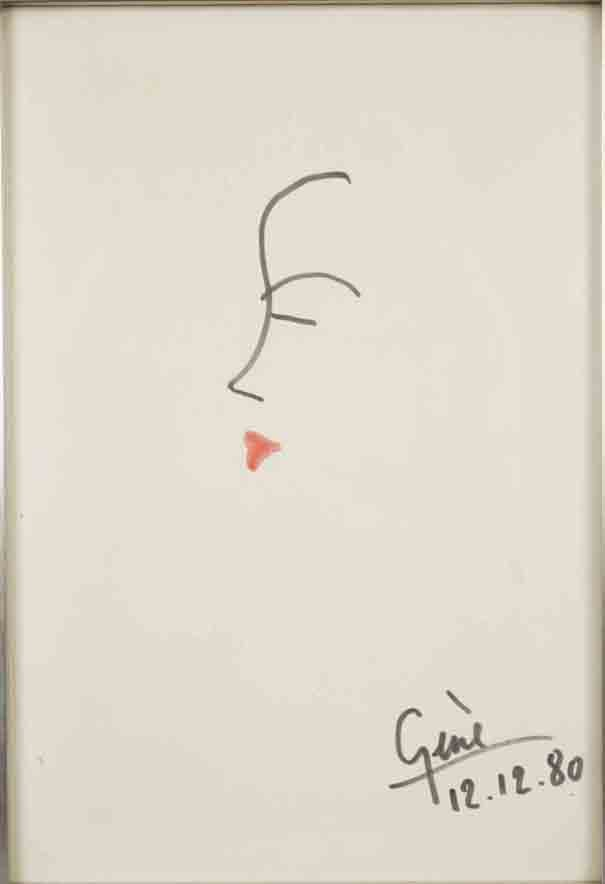 Genè
12.12.80